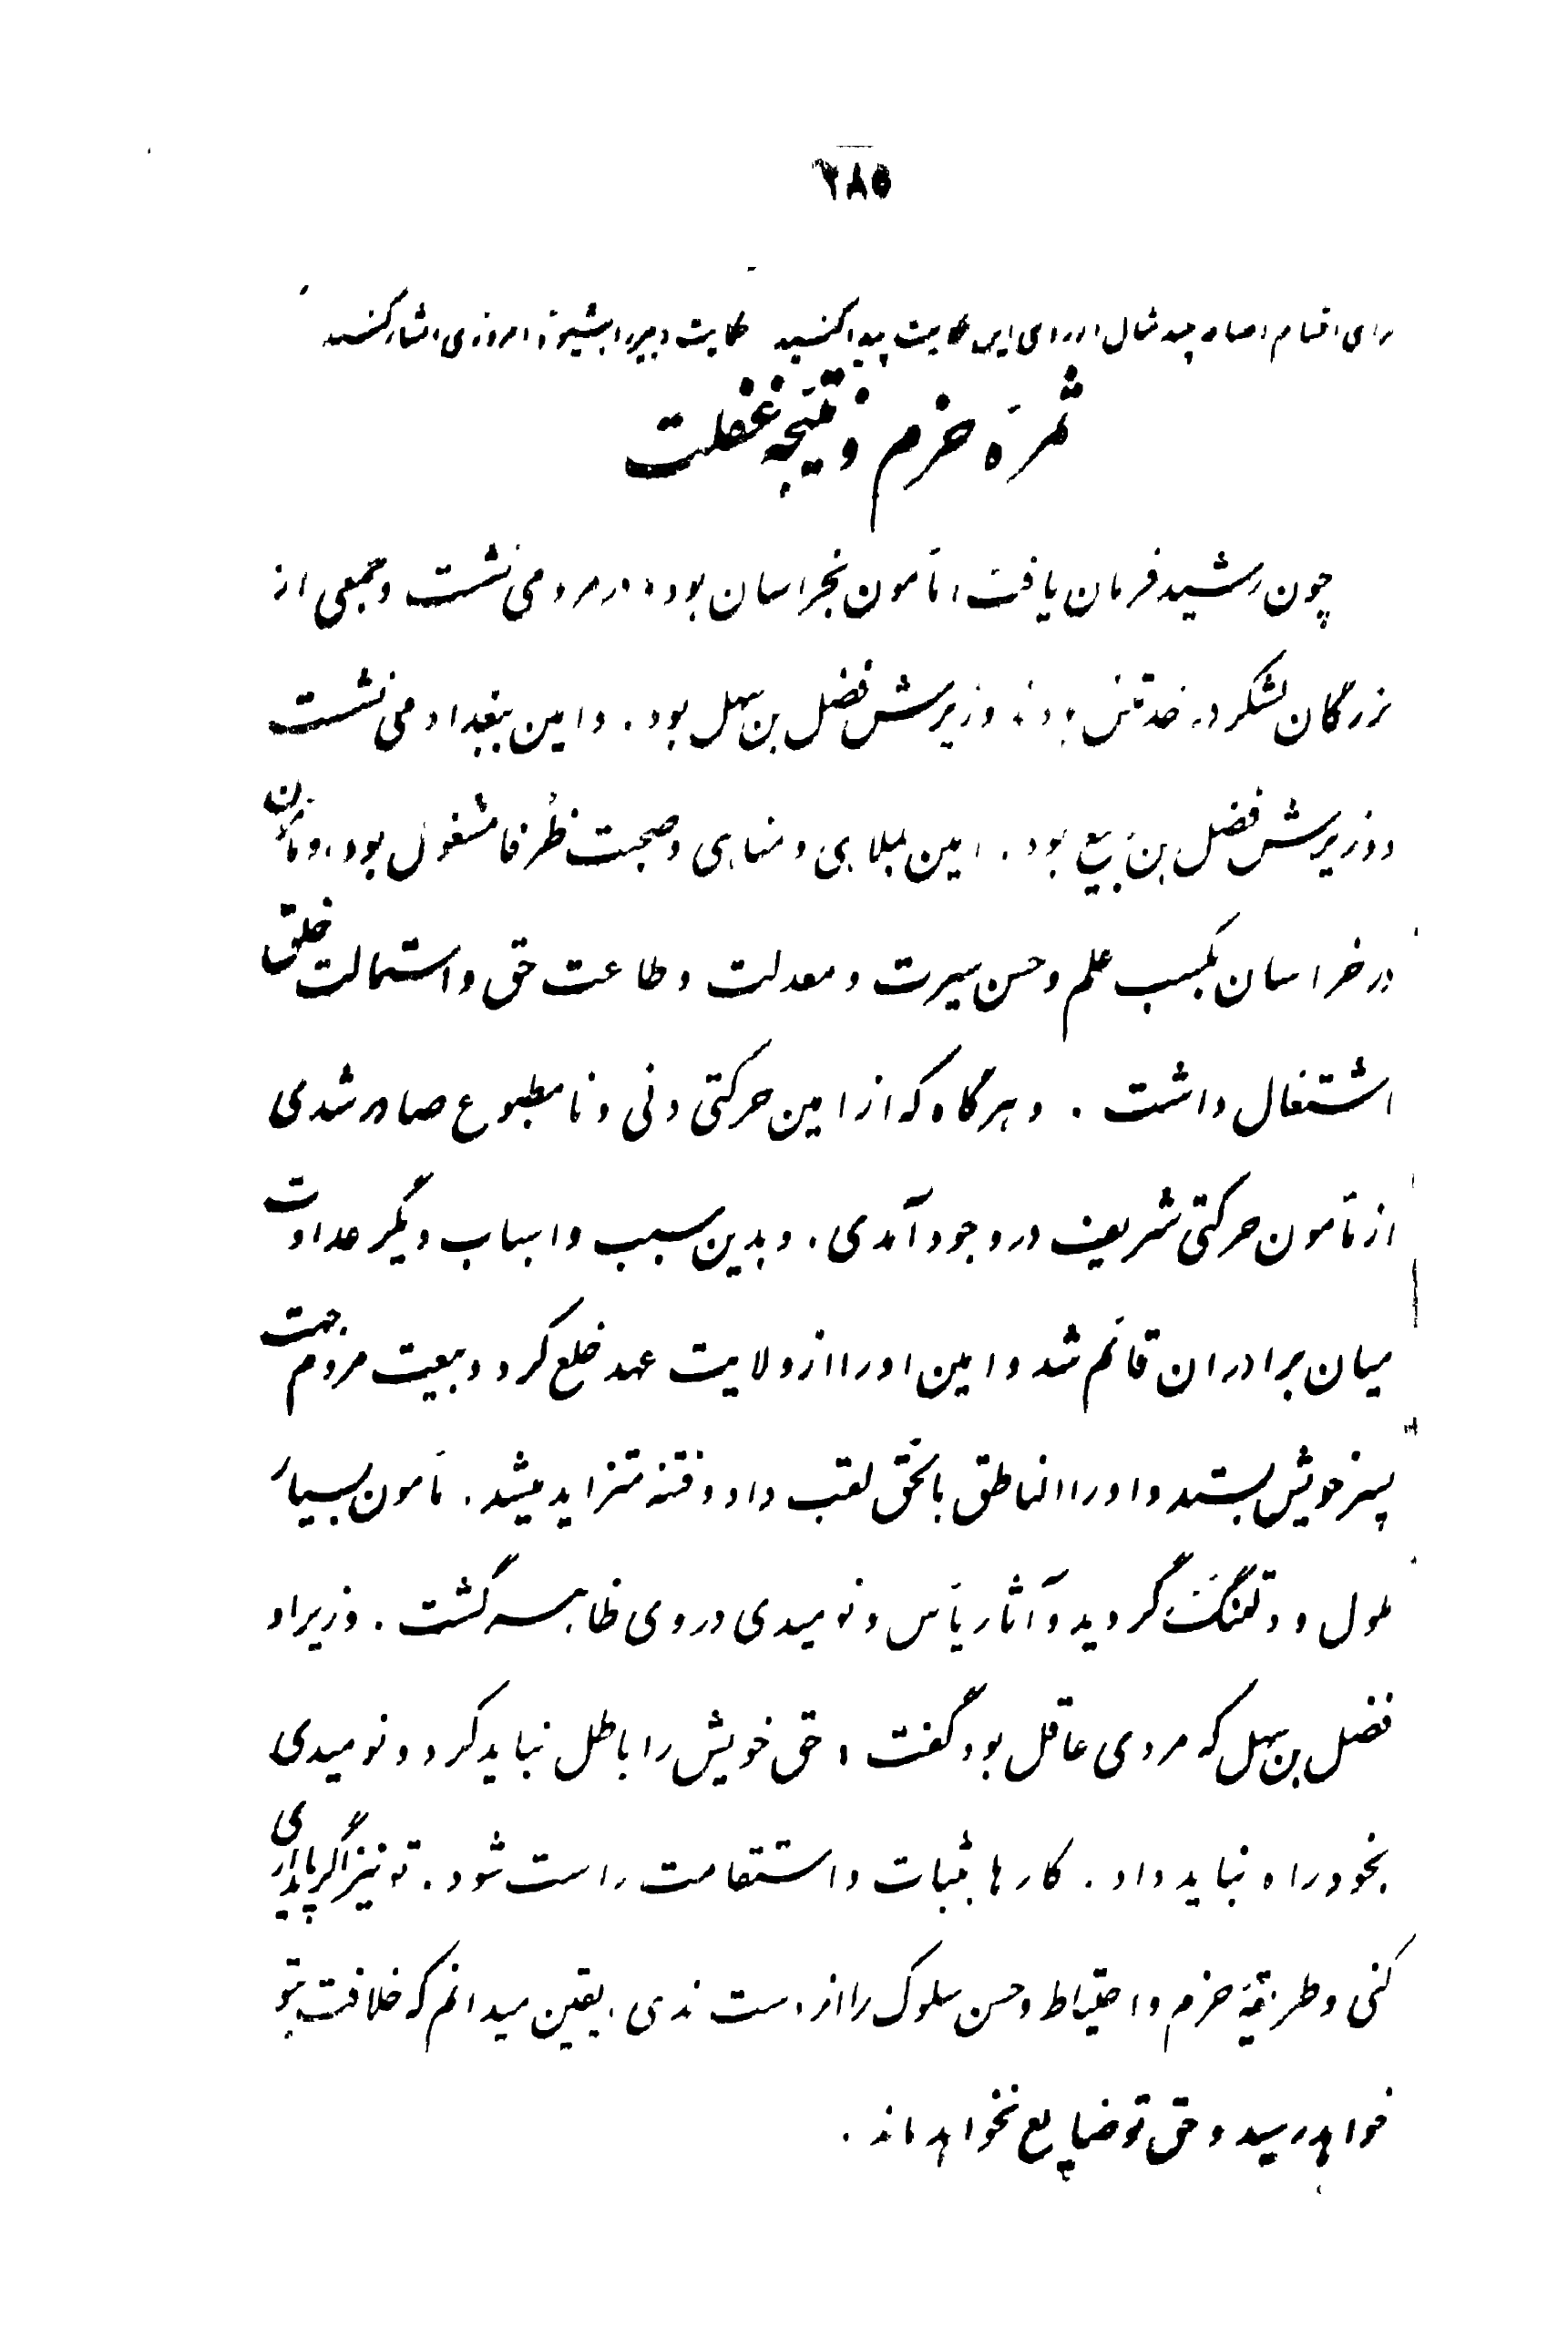 ۲۸۵
برای اقسام اضافه چند مثال از روی این حکایت پیدا کنید حکایت دبیر را بشیوهٔ امروزی انشاء کنید
ثمرهٔ حزم و نتیجهٔ غفلت
چون رشید فرمان یافت، مأمون بخراسان بود، در مرو می نشست و جمعی از
بزرگان لشکر در خدمتش بودند وزیرش فضل بن سهل بود. و امین ببغداد می نشست
و وزیرش فضل بن ربیع بود. امین بملاهی و مناهی و صحبت ظُرفا مشغول بود، و مأمون
در خراسان بکسب علم و حسن سیرت و معدلت و طاعت حق و استمالت خلق
اشتغال داشت. و هر گاه که از امین حرکتی دنی و نامطبوع صادر شدی
از مأمون حرکتی شریف در وجود آمدی. و بدین سبب و اسباب دیگر عداوت
میان برادران قائم شد و امین او را از ولایت عهد خلع کرد و بیعت مردم بجهت
پسر خویش بستد و او را الناطق بالحق لقب داد و فتنه متزاید میشد. مأمون بسیار
ملول و دلتنگ گردید و آثار یأس و نومیدی در وی ظاهر گشت. وزیر او
فضل بن سهل که مردی عاقل بود گفت: حق خویش را باطل نباید کرد و نومیدی
بخود راه نباید داد. کارها بثبات و استقامت راست شود. تو نیز اگر پایداری
کنی و طریقهٔ حزم و احتیاط و حسن سلوک را از دست ندی، یقین میدانم که خلافت بتو
خواهد رسید و حق تو ضایع نخواهد ماند.